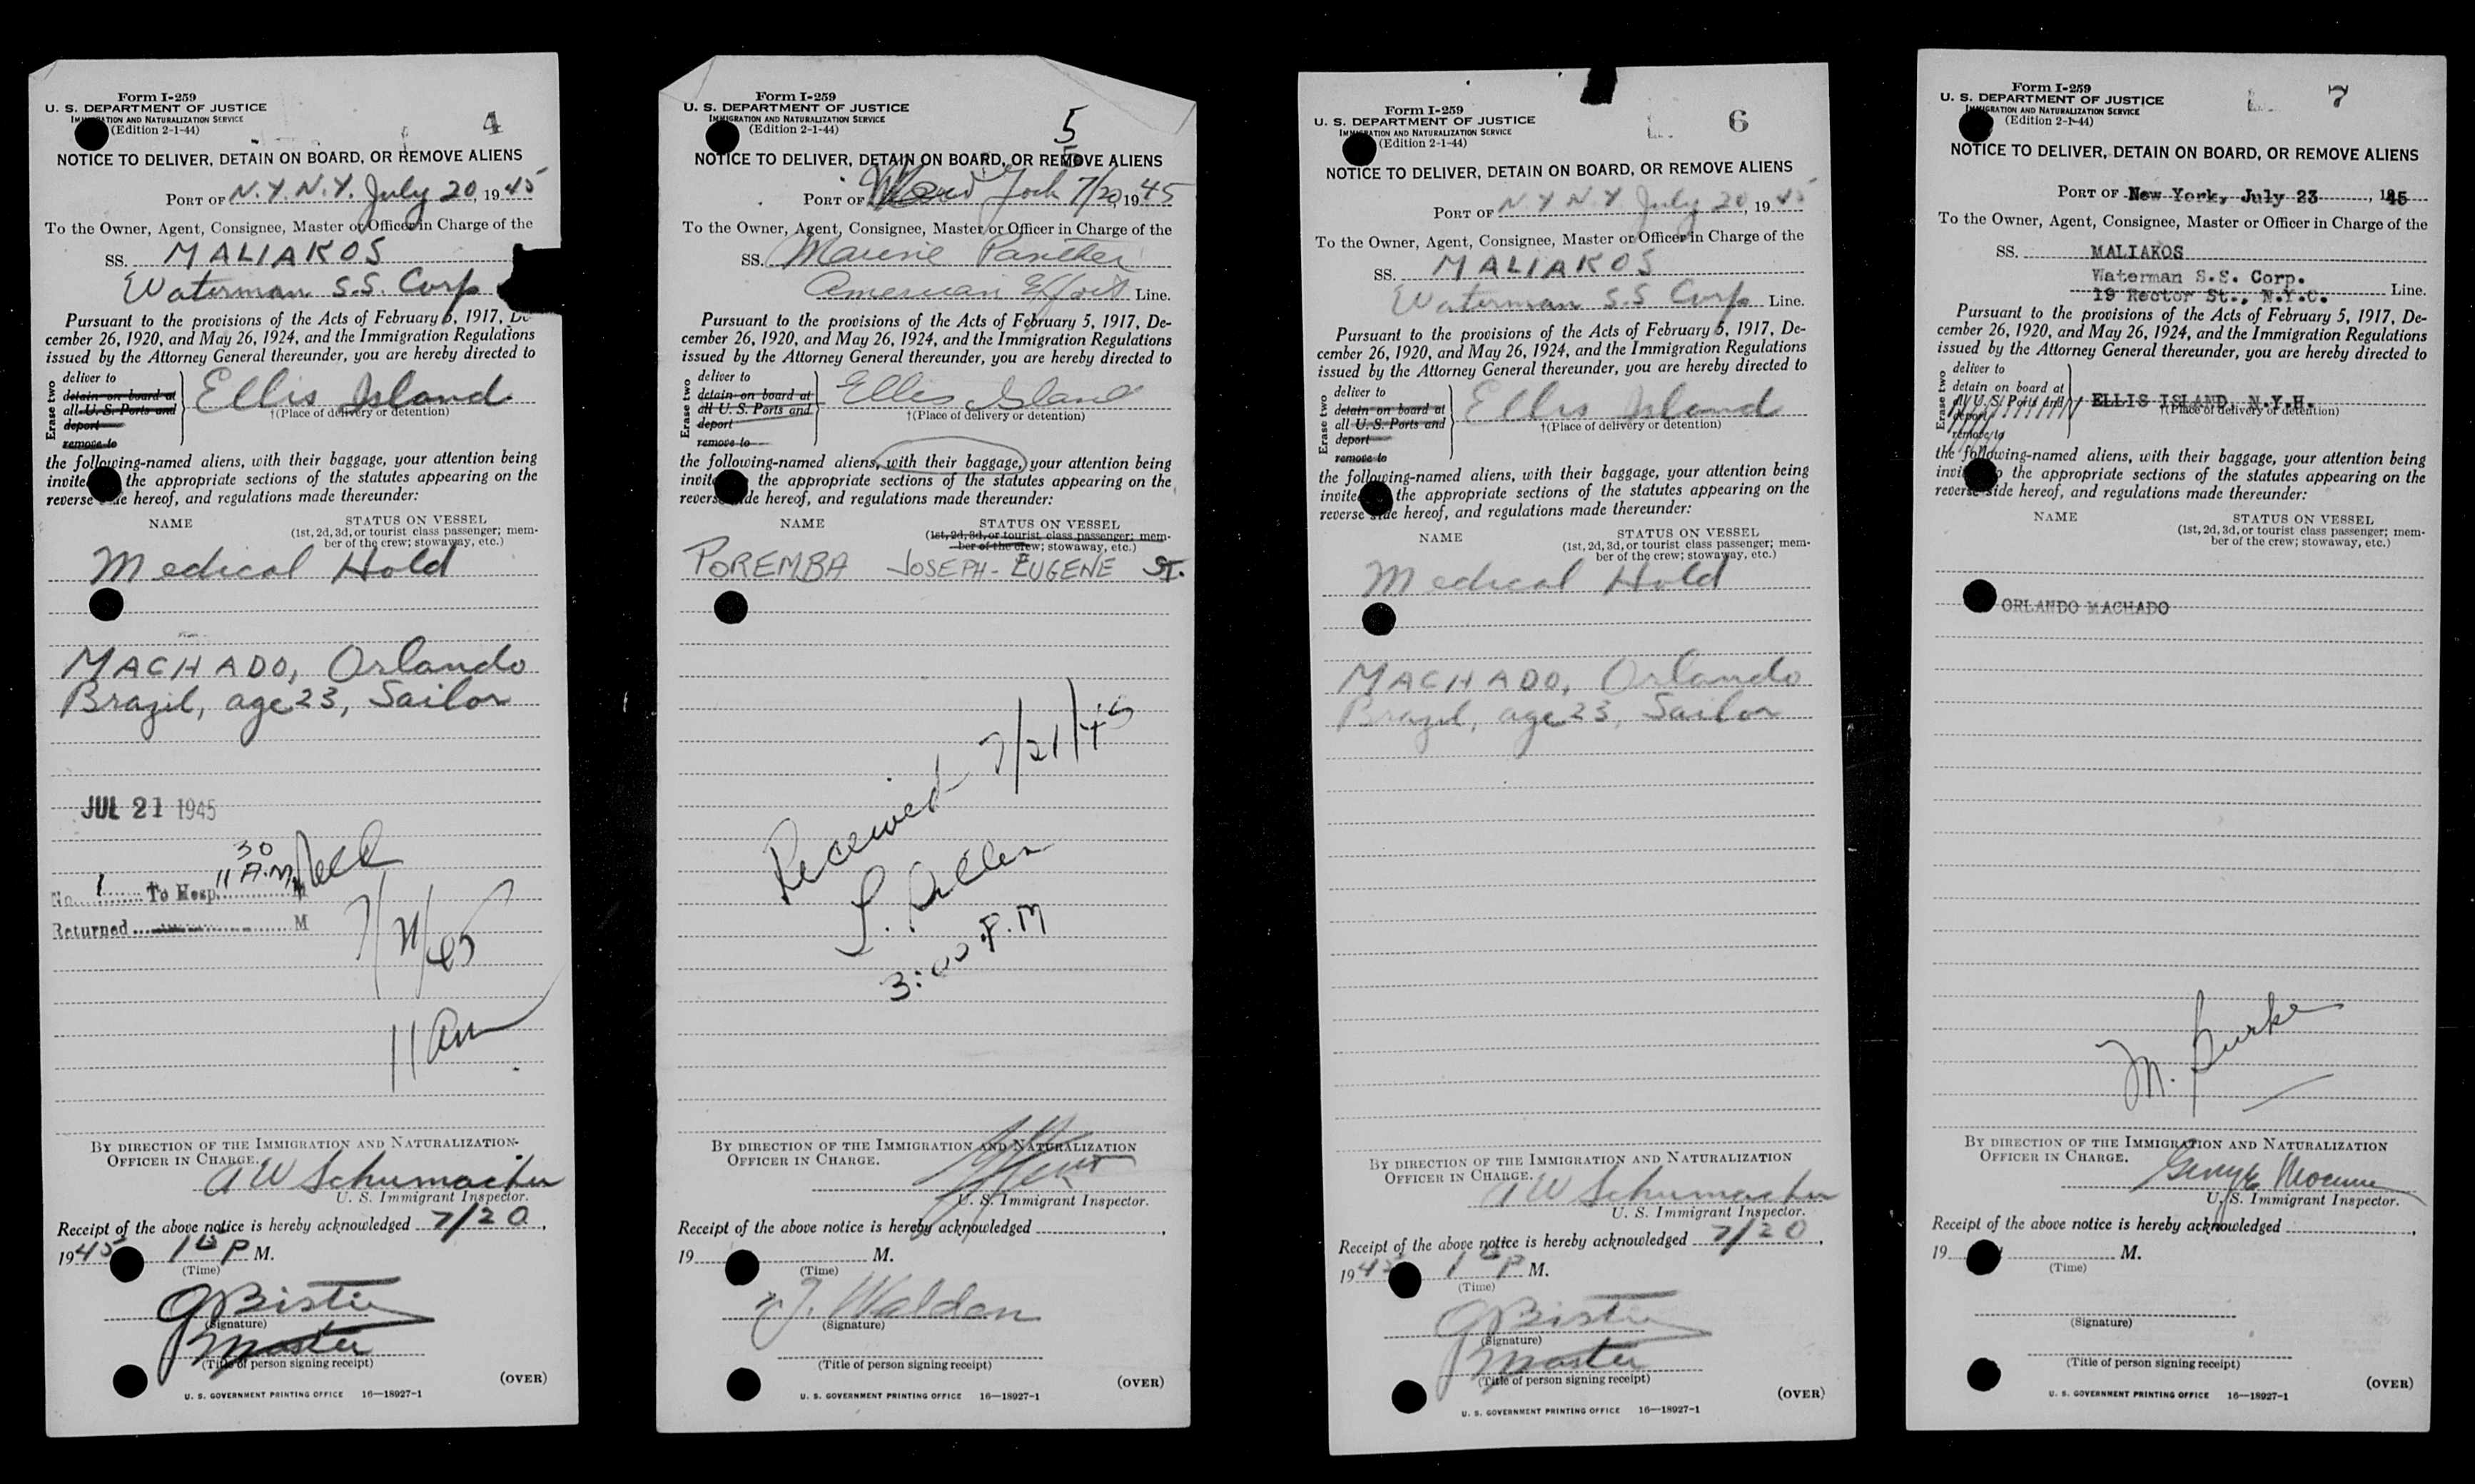 Form I-259
U. S. DEPARTMENT OF JUSTICE
IMMIGRATION AND NATURALIZATION SERVICE
(Edition 2-1-44)
4
NOTICE TO DELIVER, DETAIN ON BOARD, OR REMOVE ALIENS
PORT OF N.Y.N.Y. July 20, 1945
To the Owner, Agent, Consignee, Master or Officer in Charge of the
SS. MALIAKOS
Waterman S.S. Corp
Pursuant to the provisions of the Acts of February 5, 1917, De-
cember 26, 1920, and May 26, 1924, and the Immigration Regulations
issued by the Attorney General thereunder, you are hereby directed to
Erase two
deliver to
detain on board at
all U. S. Ports and
deport
remove to
Ellis Island
†(Place of delivery or detention)
the following-named aliens, with their baggage, your attention being
invited the appropriate sections of the statutes appearing on the
reverse side hereof, and regulations made thereunder:
NAME
STATUS ON VESSEL
(1st, 2d, 3d, or tourist class passenger; mem-
ber of the crew; stowaway, etc.)
Medical Hold
MACHADO, Orlando
Brazil, age 23, Sailor
JUL 21 1945
No. 1 To Hosp. 11 30 A.M.
Returned M
7/21/45
11 am
BY DIRECTION OF THE IMMIGRATION AND NATURALIZATION
OFFICER IN CHARGE.
A W Schumacher
U. S. Immigrant Inspector.
Receipt of the above notice is hereby acknowledged 7/20,
1945 1 P M.
(Time)
(Signature)
Master
(Title of person signing receipt)
(OVER)
U. S. GOVERNMENT PRINTING OFFICE 16—18927-1
Form I-259
U. S. DEPARTMENT OF JUSTICE
IMMIGRATION AND NATURALIZATION SERVICE
(Edition 2-1-44)
5
NOTICE TO DELIVER, DETAIN ON BOARD, OR REMOVE ALIENS
PORT OF York 7/20, 1945
To the Owner, Agent, Consignee, Master or Officer in Charge of the
SS. Marine Panther
American Export Line.
Pursuant to the provisions of the Acts of February 5, 1917, De-
cember 26, 1920, and May 26, 1924, and the Immigration Regulations
issued by the Attorney General thereunder, you are hereby directed to
Erase two
deliver to
detain on board at
all U. S. Ports and
deport
remove to
Ellis Island
†(Place of delivery or detention)
the following-named aliens, with their baggage, your attention being
invited the appropriate sections of the statutes appearing on the
reverse side hereof, and regulations made thereunder:
NAME
STATUS ON VESSEL
(1st, 2d, 3d, or tourist class passenger; mem-
ber of the crew; stowaway, etc.)
POREMBA JOSEPH-EUGENE
Received 7/21/45
3:00 P.M
BY DIRECTION OF THE IMMIGRATION AND NATURALIZATION
OFFICER IN CHARGE.
U. S. Immigrant Inspector.
Receipt of the above notice is hereby acknowledged ,
19 M.
(Time)
J. Waldon
(Signature)
(Title of person signing receipt)
(OVER)
U. S. GOVERNMENT PRINTING OFFICE 16—18927-1
Form I-259
U. S. DEPARTMENT OF JUSTICE
IMMIGRATION AND NATURALIZATION SERVICE
(Edition 2-1-44)
6
NOTICE TO DELIVER, DETAIN ON BOARD, OR REMOVE ALIENS
PORT OF N.Y N.Y July 20, 1945
To the Owner, Agent, Consignee, Master or Officer in Charge of the
SS. MALIAKOS
Waterman S.S Corp Line.
Pursuant to the provisions of the Acts of February 5, 1917, De-
cember 26, 1920, and May 26, 1924, and the Immigration Regulations
issued by the Attorney General thereunder, you are hereby directed to
Erase two
deliver to
detain on board at
all U. S. Ports and
deport
remove to
Ellis Island
†(Place of delivery or detention)
the following-named aliens, with their baggage, your attention being
invited the appropriate sections of the statutes appearing on the
reverse side hereof, and regulations made thereunder:
NAME
STATUS ON VESSEL
(1st, 2d, 3d, or tourist class passenger; mem-
ber of the crew; stowaway, etc.)
Medical Hold
MACHADO, Orlando
Brazil, age 23, Sailor
BY DIRECTION OF THE IMMIGRATION AND NATURALIZATION
OFFICER IN CHARGE.
A W Schumacher
U. S. Immigrant Inspector.
Receipt of the above notice is hereby acknowledged 7/20,
1945 1 P M.
(Time)
(Signature)
Master
(Title of person signing receipt)
(OVER)
U. S. GOVERNMENT PRINTING OFFICE 16—18927-1
Form I-259
U. S. DEPARTMENT OF JUSTICE
IMMIGRATION AND NATURALIZATION SERVICE
(Edition 2-1-44)
7
NOTICE TO DELIVER, DETAIN ON BOARD, OR REMOVE ALIENS
PORT OF New York, July 23, 1945
To the Owner, Agent, Consignee, Master or Officer in Charge of the
SS. MALIAKOS
Waterman S.S. Corp.
19 Rector St., N.Y.C. Line.
Pursuant to the provisions of the Acts of February 5, 1917, De-
cember 26, 1920, and May 26, 1924, and the Immigration Regulations
issued by the Attorney General thereunder, you are hereby directed to
Erase two
deliver to
detain on board at
all U. S. Ports and
deport
remove to
ELLIS ISLAND, N.Y.H.
†(Place of delivery or detention)
the following-named aliens, with their baggage, your attention being
invited to the appropriate sections of the statutes appearing on the
reverse side hereof, and regulations made thereunder:
NAME
STATUS ON VESSEL
(1st, 2d, 3d, or tourist class passenger; mem-
ber of the crew; stowaway, etc.)
ORLANDO MACHADO
M. Burke
BY DIRECTION OF THE IMMIGRATION AND NATURALIZATION
OFFICER IN CHARGE.
George
U. S. Immigrant Inspector.
Receipt of the above notice is hereby acknowledged ,
19 M.
(Time)
(Signature)
(Title of person signing receipt)
(OVER)
U. S. GOVERNMENT PRINTING OFFICE 16—18927-1